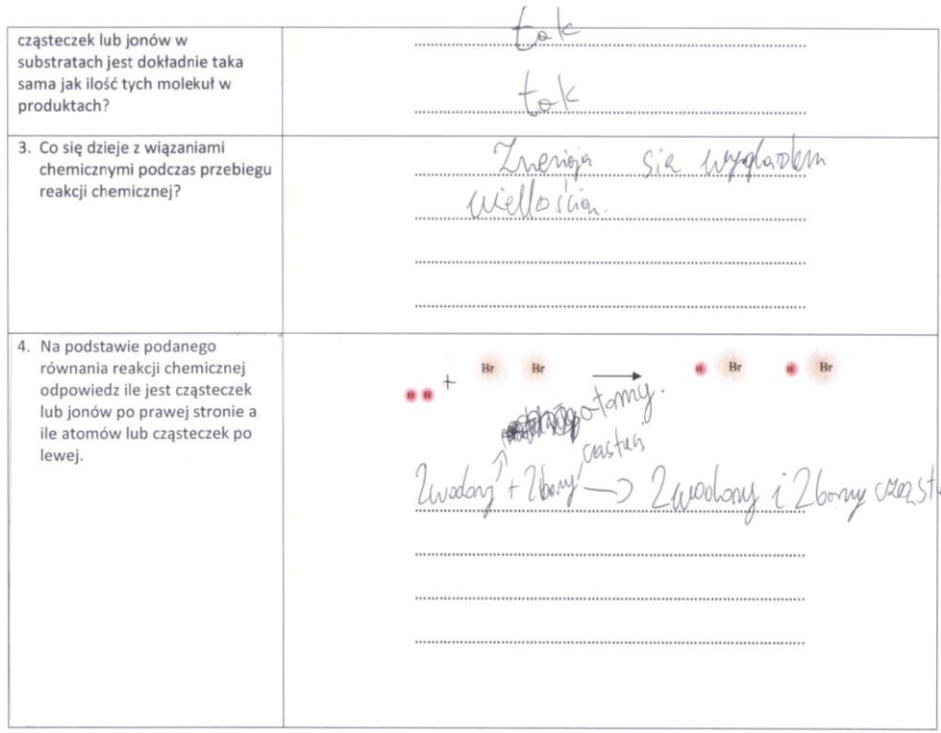 cząsteczek lub jonów w
substratach jest dokładnie taka
sama jak ilość tych molekuł w
produktach?
tak
tak
3. Co się dzieje z wiązaniami
chemicznymi podczas przebiegu
reakcji chemicznej?
się wyglądem
4. Na podstawie podanego
równania reakcji chemicznej
odpowiedz ile jest cząsteczek
lub jonów po prawej stronie a
ile atomów lub cząsteczek po
lewej.
H H + Br Br → H Br H Br
atomy.
2wodory + 2bory → 2wodory i 2bory cząst